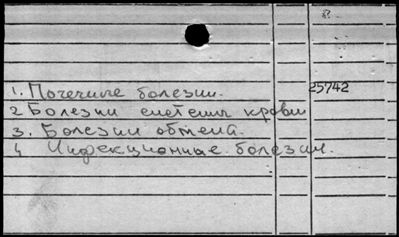 1. Почечные болезни. 25742
2 Болезни системы крови
3. Болезни обмена.
4 Инфекционные болезни.